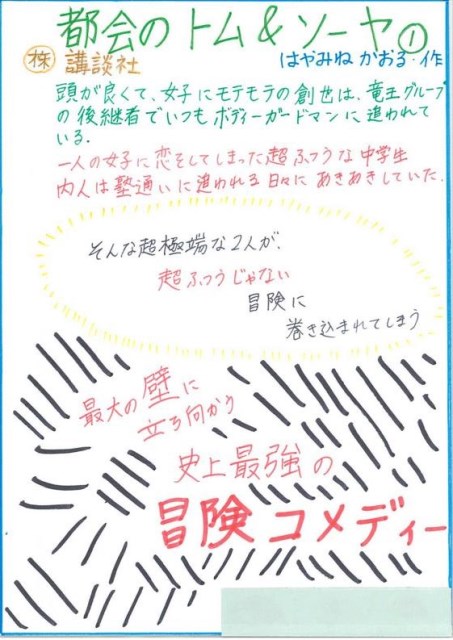 都会のトム&ソーヤ①
㈱講談社
はやみねかおる・作
頭が良くて、女子にモテモテの創也は、竜王グループ
の後継者でいつもボディーガードマンに追われて
いる.
一人の女子に恋をしてしまった超ふつうな中学生
内人は塾通いに追われる日々にあきあきしていた.
そんな超極端な2人が、
超ふつうじゃない
冒険に
巻き込まれてしまう
最大の壁に
立ち向かう
史上最強の
冒険コメディー